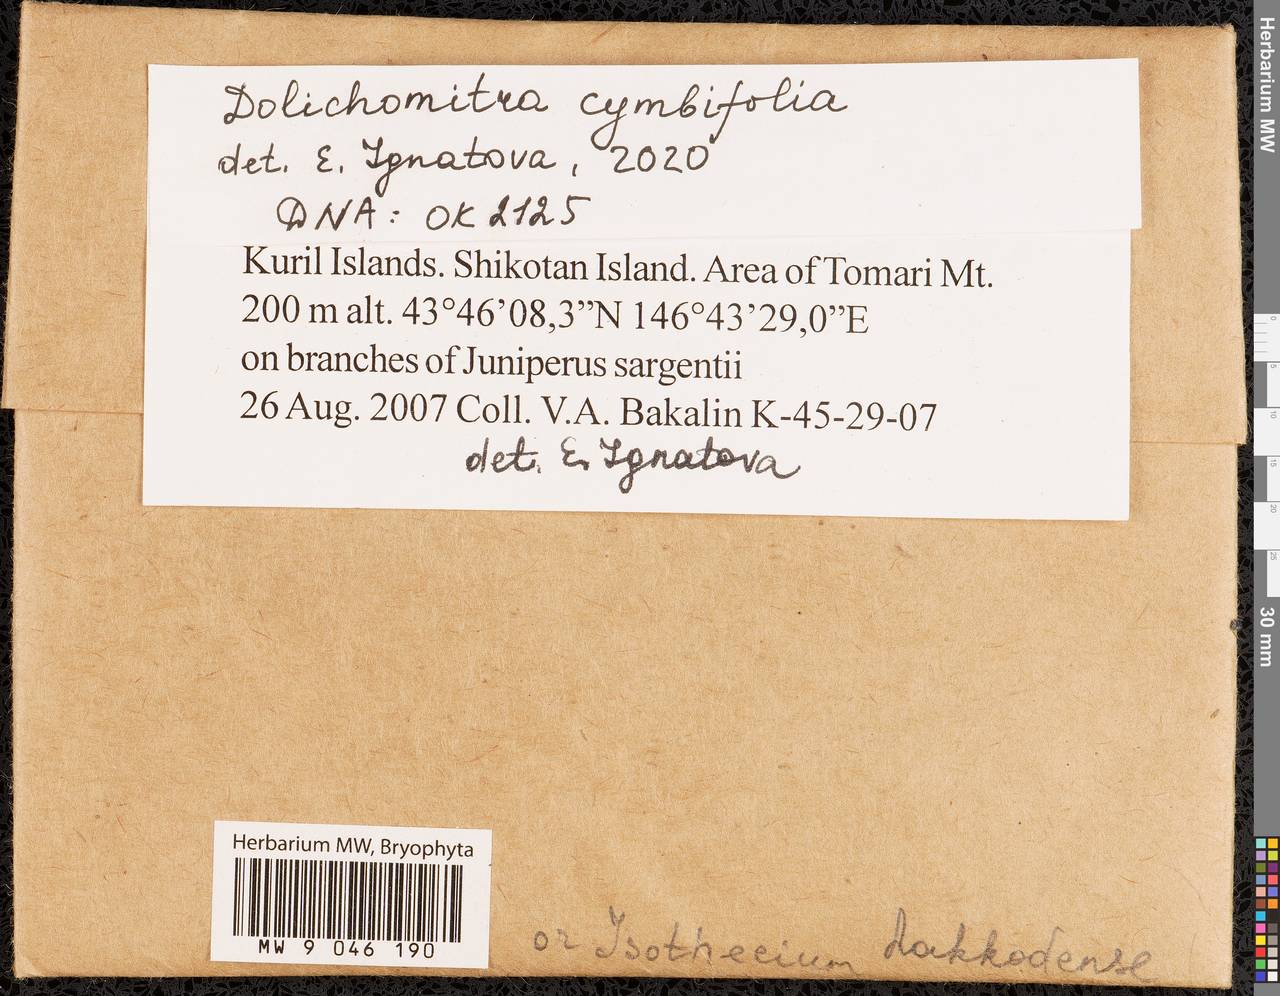 Dolichomitra cymbifolia
det. E. Ignatova, 2020
DNA: OK2125
Kuril Islands. Shikotan Island. Area of Tomari Mt.
200 m alt. 43°46’08,3”N 146°43’29,0”E
on branches of Juniperus sargentii
26 Aug. 2007 Coll. V.A. Bakalin K-45-29-07
det. E. Ignatova
Herbarium MW, Bryophyta
MW 9 046 190
or Isothecium hakkodense
Herbarium MW
0
5
10
15
20
25
30 mm